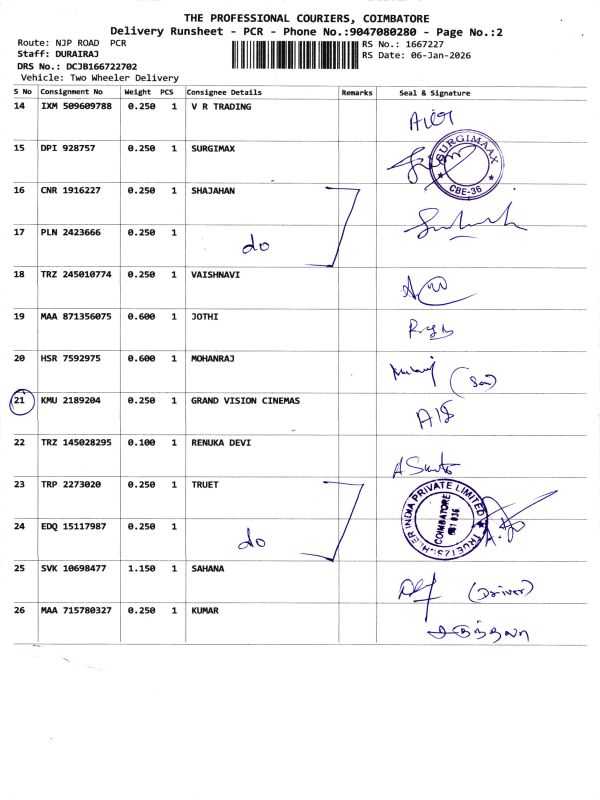 THE PROFESSIONAL COURIERS, COIMBATORE
Delivery Runsheet - PCR - Phone No.:9047080280 - Page No.:2
Route: NJP ROAD PCR
RS No.: 1667227
Staff: DURAIRAJ
RS Date: 06-Jan-2026
DRS No.: DCJB166722702
Vehicle: Two Wheeler Delivery
S No Consignment No Weight PCS Consignee Details Remarks Seal & Signature
14 IXM 509609788 0.250 1 V R TRADING
15 DPI 928757 0.250 1 SURGIMAX
SURGIMAAX
CBE-36
16 CNR 1916227 0.250 1 SHAJAHAN
17 PLN 2423666 0.250 1 do
18 TRZ 245010774 0.250 1 VAISHNAVI
19 MAA 871356075 0.600 1 JOTHI
20 HSR 7592975 0.600 1 MOHANRAJ (Son)
21 KMU 2189204 0.250 1 GRAND VISION CINEMAS
22 TRZ 145028295 0.100 1 RENUKA DEVI
23 TRP 2273020 0.250 1 TRUET
INDIA PRIVATE LIMITED
COIMBATORE
24 EDQ 15117987 0.250 1 do
25 SVK 10698477 1.150 1 SAHANA (Driver)
26 MAA 715780327 0.250 1 KUMAR